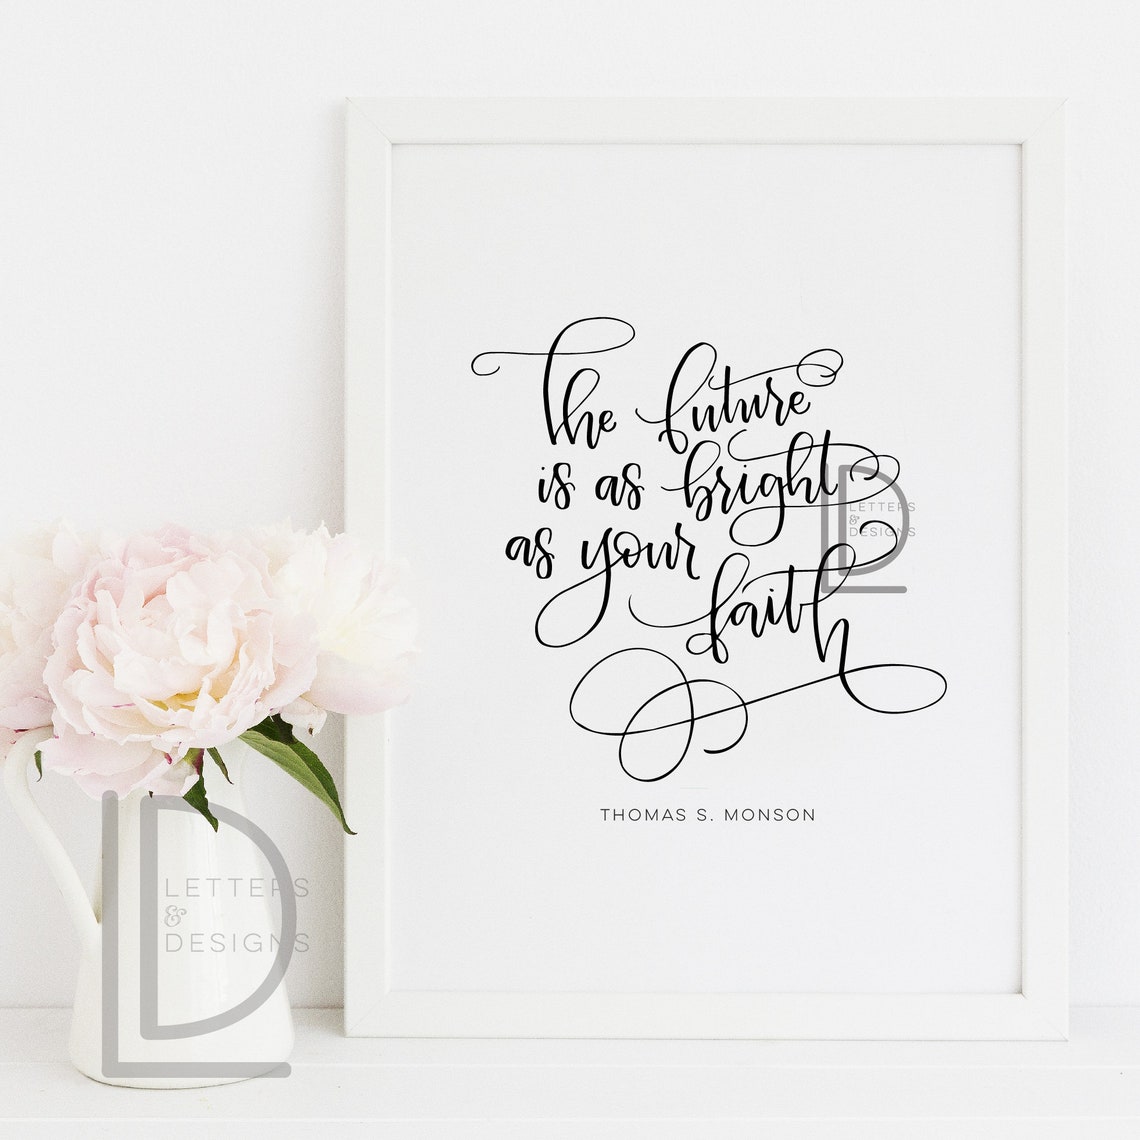 The future
is as bright
as your
faith
THOMAS S. MONSON
LETTERS
&
DESIGNS
LD
LETTERS
&
DESIGNS
LD